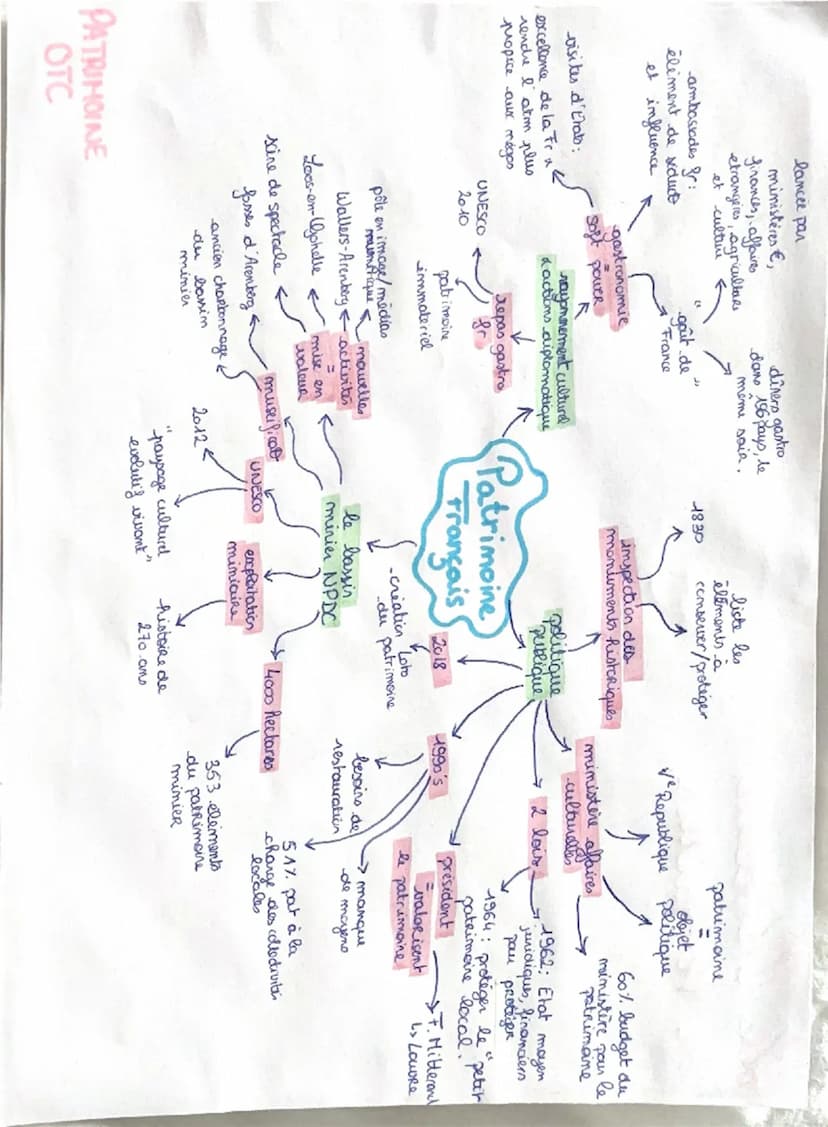 PATRIMOINE
OTC
Patrimoine
Français
rayonnement culturel
& actions diplomatique
gastronomie
=
soft power
ambassades fr :
élément de séduct°
et influence
visites d'Etats :
excellence de la Fr
rendre l'atm plus
propice aux négos
"goût de
France"
lancée par
ministères €,
finances, affaires
etrangères, agriculture
et culture
dîners gastro
dans 156 pays, le
même soir.
repas gastro
fr
UNESCO
2010
patrimoine
immatériel
politique
publique
inspection des
monuments historiques
1830
liste les
éléments à
conserver/protéger
ministère affaires
culturelles
Ve Republique
patrimoine
=
objet
politique
60% budget du
ministère pour le
patrimoine
2 lois
1962 : Etat moyen
juridiques, financiers
pour protéger
1964 : protéger le "petit
patrimoine local.
président
= valorisent
le patrimoine
F. Mitterand
↳ Louvre
1990's
besoins de
restauration
manque
de moyens
51% pat à la
charge des collectivités
locales
2018
-création Loto
du patrimoine
le bassin
minier NPDC
nouvelles
activités
=
mise en
valeur
pôle en image/médias
numérique
Wallers-Arenberg
Loos-em-Gohelle
scène de spectacle
muséificat°
fosses d'Arenberg
ancien charbonnage
du bassin
minier
UNESCO
2012
"paysage culturel
évolutif vivant"
exploitation
minière
-histoire de
270 ans
4000 hectares
353 éléments
du patrimoine
minier